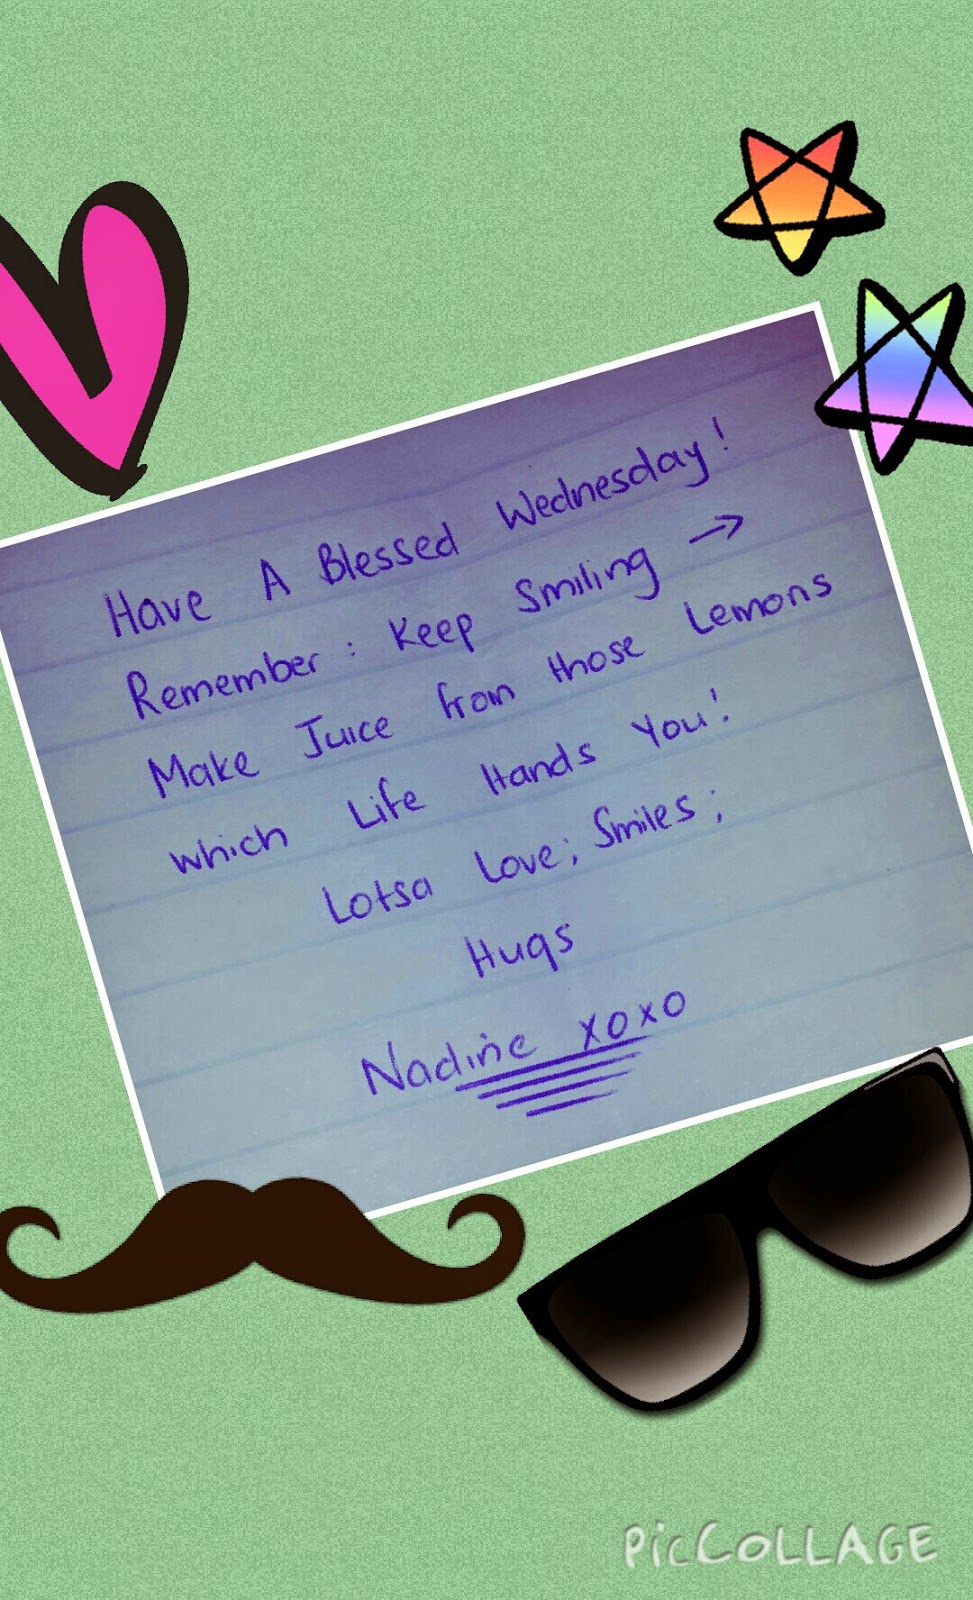 Have A Blessed Wednesday!
Remember: Keep Smiling →
Make Juice from those Lemons
which Life Hands You!
Lotsa Love; Smiles;
Hugs
Nadine xoxo
PicCOLLAGE